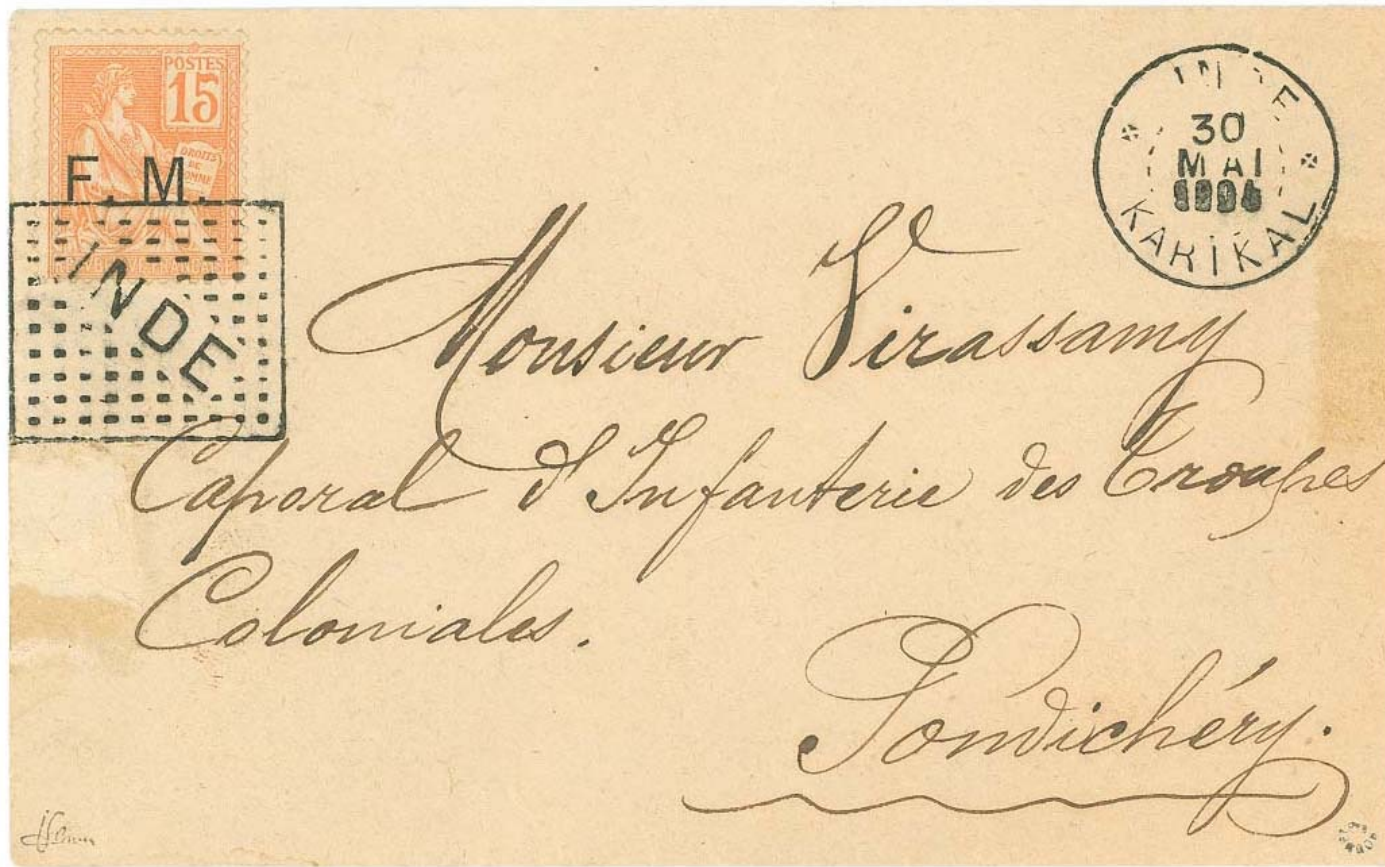 POSTES
15
DROITS
DE
HOMME
F. M.
INDE
INDE
30
MAI
KARIKAL
Monsieur Virassamy
Caporal d'Infanterie des Troupes
Coloniales.
Pondichéry.